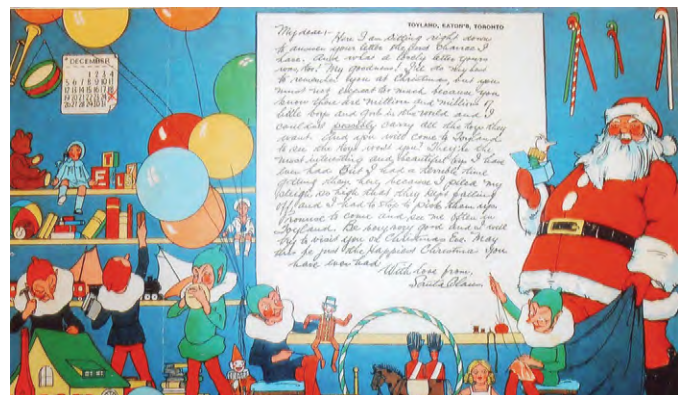 TOYLAND, EATON'S, TORONTO
My dear:-
Here I am sitting right down
to answer your letter the first chance I
have. And what a lovely letter yours
was, too! My goodness! I'll do my best
to remember you at Christmas, but you
must not expect too much because you
know there are millions and millions of
little boys and girls in the world and I
couldn't possibly carry all the toys they
want. And you will come to Toyland
to see the toys won't you? They're the
most interesting and beautiful toys I have
ever had. But I had a terrible time
getting them here because I piled my
sleigh so high that they kept falling
off and I had to stop to pick them up.
Promise to come and see me often in
Toyland. Be very, very good and I will
try to visit you at Christmas Eve. May
this be just the Happiest Christmas you
have ever had.
With love from,
Santa Claus
DECEMBER
1 2 3 4
5 6 7 8 9 10 11
12 13 14 15 16 17 18
19 20 21 22 23 24 25
26 27 28 29 30 31